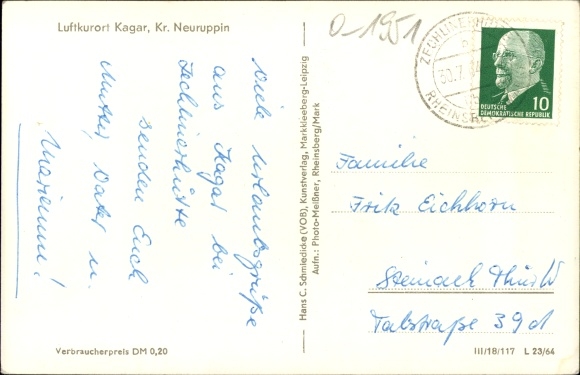 Luftkurort Kagar, Kr. Neuruppin
Viele Urlaubsgrüße
aus Kagar bei
Zechlinerhütte
senden Euch
Mutter, Vater u.
Marianne!
Verbraucherpreis DM 0,20
Hans C. Schmiedicke (VOB), Kunstverlag, Markkleeberg-Leipzig
Aufn.: Photo-Meißner, Rheinsberg/Mark
0-1951
ZECHLINERHÜTTE
30.7.
RHEINSBERG
10
DEUTSCHE
DEMOKRATISCHE REPUBLIK
Familie
Fritz Eichhorn
Steinach Thür W
Talstraße 39d
III/18/117 L 23/64